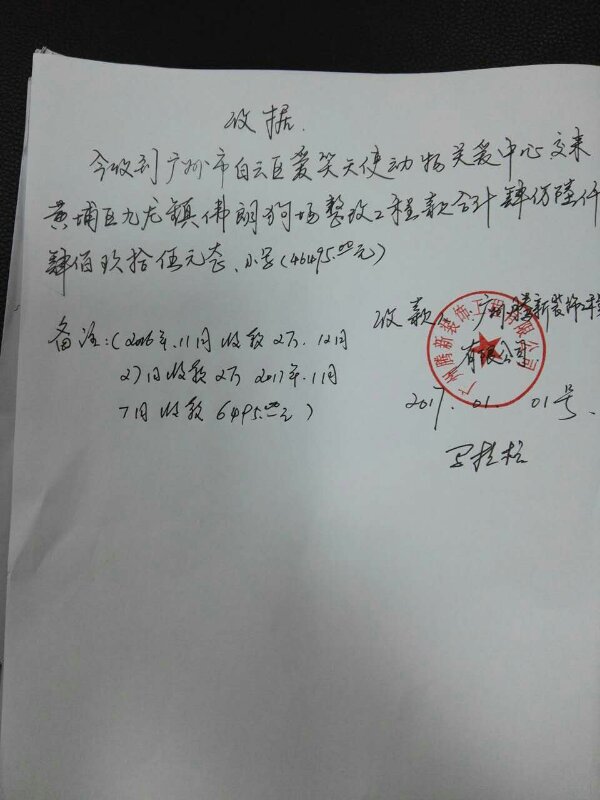 收据.
今收到广州市白云区爱笑天使动物关爱中心交来
黄埔区九龙镇佛朗狗场整改工程款合计肆仿陆仟
肆佰玖拾伍元整、小写(46495.00元)
收款: 广州腾新装饰工程
有限公司
备注:(2016年.11月收款2万.12月
27日收款2万 2017年.1月
7日收款6495.00元)
2017.01.01号.
广州腾新装饰工程有限公司